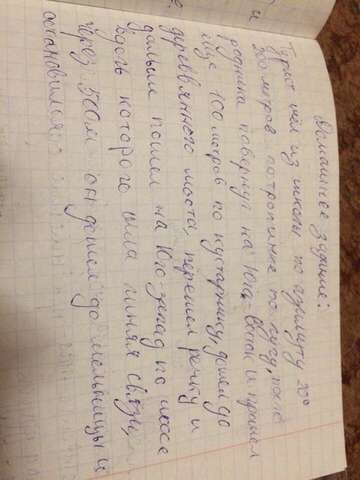 Домашнее задание:
Турист шёл из школы по азимуту 330
200 метров по тропинке по лугу, после
родника повернул на Юго Восток и прошел
еще 100 метров по кустарнику, дошел до
деревянного моста, перешел речку и
дальше пошел на Юго-запад по шоссе
вдоль которого шла линия связи,
через 500м он дошел до мельницы и
остановился.